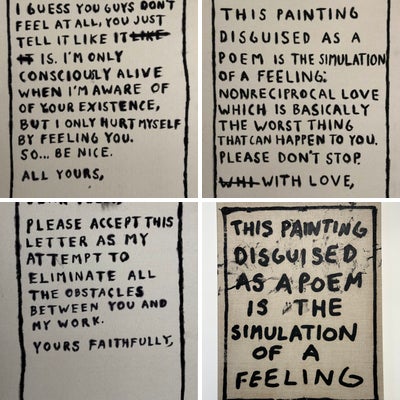 I GUESS YOU GUYS DON'T
FEEL AT ALL, YOU JUST
TELL IT LIKE IT LIKE
IT IS. I'M ONLY
CONSCIOUSLY ALIVE
WHEN I'M AWARE OF
OF YOUR EXISTENCE,
BUT I ONLY HURT MYSELF
BY FEELING YOU.
SO... BE NICE.
ALL YOURS,
THIS PAINTING
DISGUISED AS A
POEM IS THE SIMULATION
OF A FEELING:
NONRECIPROCAL LOVE
WHICH IS BASICALLY
THE WORST THING
THAT CAN HAPPEN TO YOU.
PLEASE DON'T STOP.
WITH LOVE,
PLEASE ACCEPT THIS
LETTER AS MY
ATTEMPT TO
ELIMINATE ALL
THE OBSTACLES
BETWEEN YOU AND
MY WORK.
YOURS FAITHFULLY,
THIS PAINTING
DISGUISED
AS A POEM
IS THE
SIMULATION
OF A
FEELING